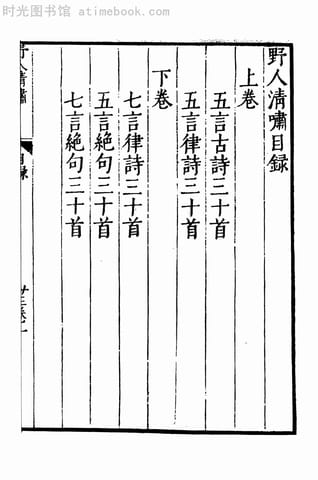 时光图书馆 · atimebook.com
野人清嘯目録
上卷
五言古詩三十首
五言律詩三十首
下卷
七言律詩三十首
五言絕句三十首
七言絕句三十首
野人清嘯
目録